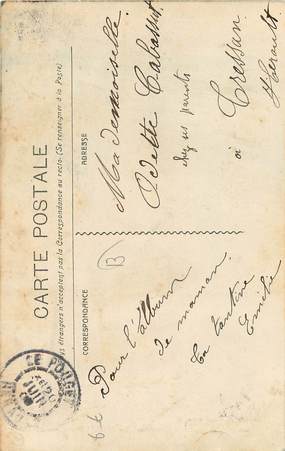 CARTE POSTALE
s étrangers n'acceptent pas la Correspondance au recto. (Se renseigner à la Poste)
CORRESPONDANCE
ADRESSE
Pour l'album
de maman.
Ta tantine
Emilie
B
Mademoiselle
Odette Cabassut
chez ses parents
à
Tressan
Hérault
LE POUGET
HERAULT
JUIL